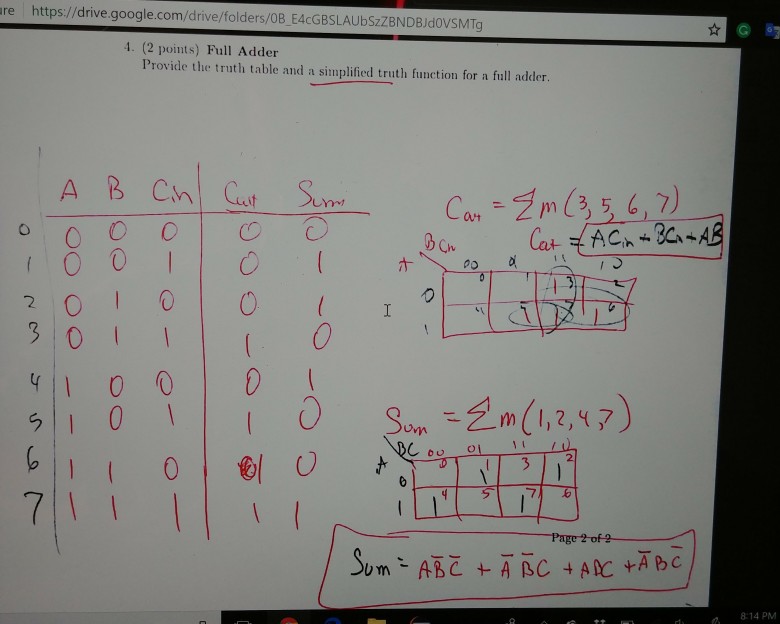 ure https://drive.google.com/drive/folders/0B_E4cGBSLAUbSzZBNDBJd0VSMTg
4. (2 points) Full Adder
Provide the truth table and a simplified truth function for a full adder.
A B Cin Cout Sum
0 0 0 0 0 0
1 0 0 1 0 1
2 0 1 0 0 1
3 0 1 1 1 0
4 1 0 0 0 1
5 1 0 1 1 0
6 1 1 0 1 0
7 1 1 1 1 1
Cout = Σm(3, 5, 6, 7)
Cout = ACin + BCin + AB
BCin
A 00 01 11 10
0 0 1 1 3 2
1 4 1 5 1 7 1 6
Sum = Σm(1, 2, 4, 7)
BC 00 01 11 10
A
0 0 1 1 3 1 2
1 1 4 5 1 7 6
Page 2 of 2
Sum = AB̅C̅ + A̅B̅C + ABC + A̅BC̅
8:14 PM